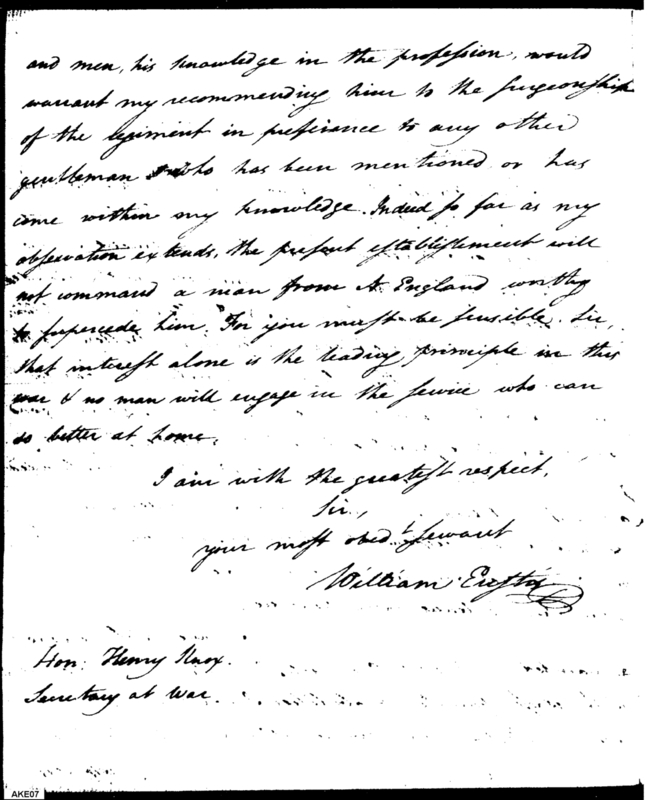 and men, his knowledge in the profession, would
warrant my recommending him to the Surgeonship
of the regiment in preference to any other
gentleman who has been mentioned or has
come within my knowledge. Indeed so far as my
observation extends, the present establishment will
not command a man from N. England worthy
to supercede him. For you must be sensible, Sir,
that interest alone is the leading principle in this
war & no man will engage in the service who can
do better at home.
I am with the greatest respect,
Sir,
your most obedt servant
William Eustis
Hon. Henry Knox.
Secretary at War.
AKE07